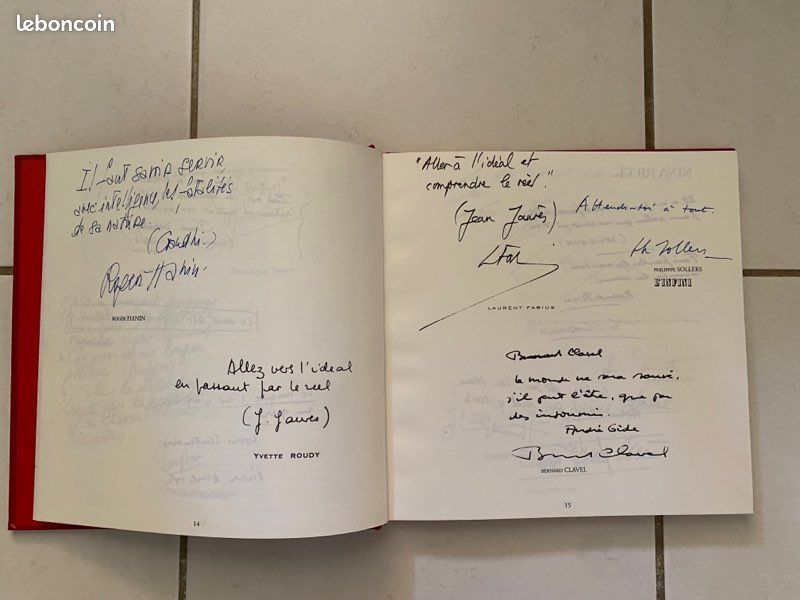 leboncoin
Il faut savoir servir,
avec intelligence, les fatalités
de sa nature...
(Gandhi.)
Roger Hanin.
ROGER HANIN
Allez vers l'idéal
en passant par le réel
(J. Jaurès)
YVETTE ROUDY
14
"Aller à l'idéal et
comprendre le réel".
(Jean Jaurès)
LAURENT FABIUS
Attends-toi à tout.
Ph Sollers
PHILIPPE SOLLERS
L'INFINI
Bernard Clavel
Le monde ne sera sauvé,
s'il peut l'être, que par
des insoumis.
André Gide
Bernard Clavel
BERNARD CLAVEL
15
NINA RICCI